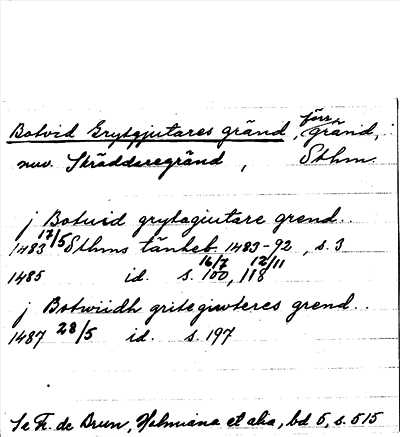 Botvid Grytgjutares gränd, förr gränd,
nuv. Skräddaregränd, Sthm.
j Botuid grytogiutare grend..
1483 17/5 Sthms tänkeb. 1483-92, s. 3
1485 id. s. 16/7 100, 12/11 118
j Botwiidh gritegiwteres grend..
1487 28/5 id. s. 197
Se Fr. de Brun, Holmiana et alia, bd 5, s. 515